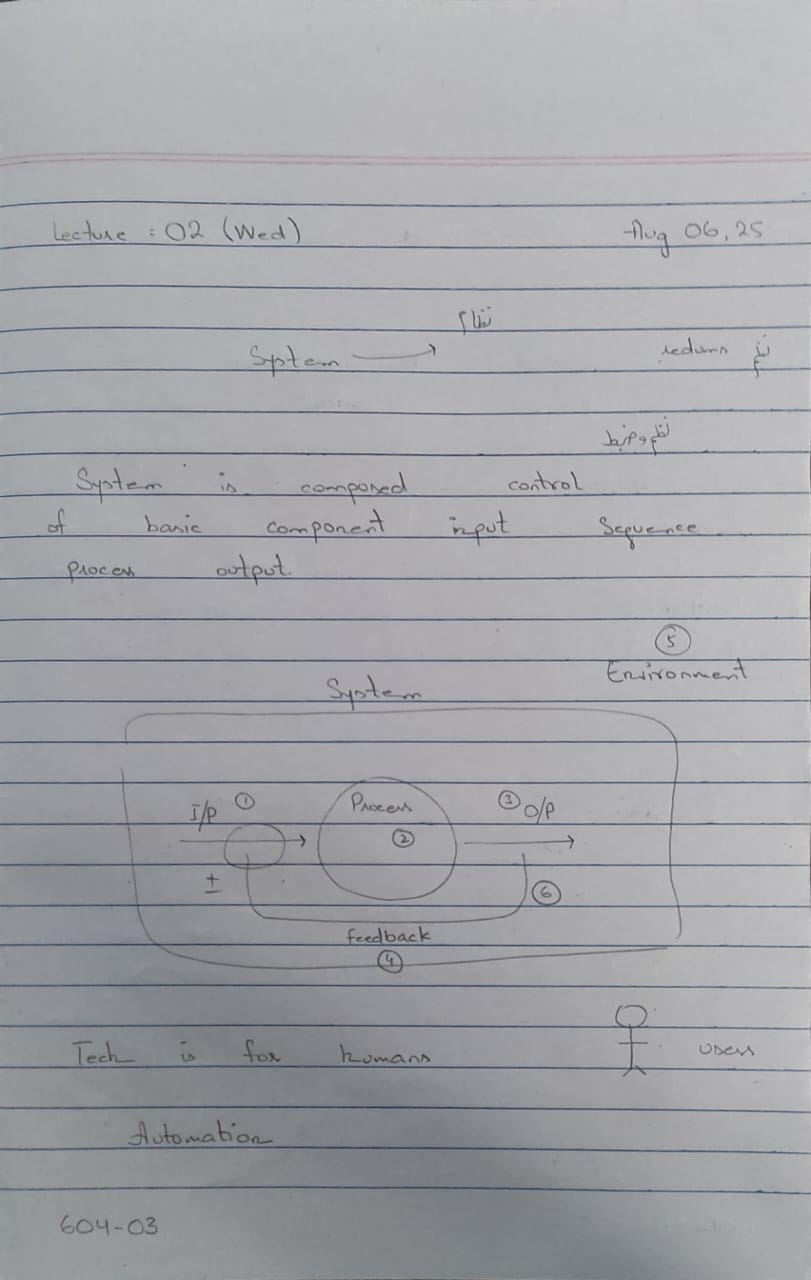 Lecture : 02 (Wed) Aug 06, 25
نظام
System
نظم
نظم و ضبط
System is composed control
of basic component input Sequence
process output.
5
Environment
System
I/P 1 Process 3 O/P
2
±
6
feedback
4
Tech is for humans users
Automation
604-03